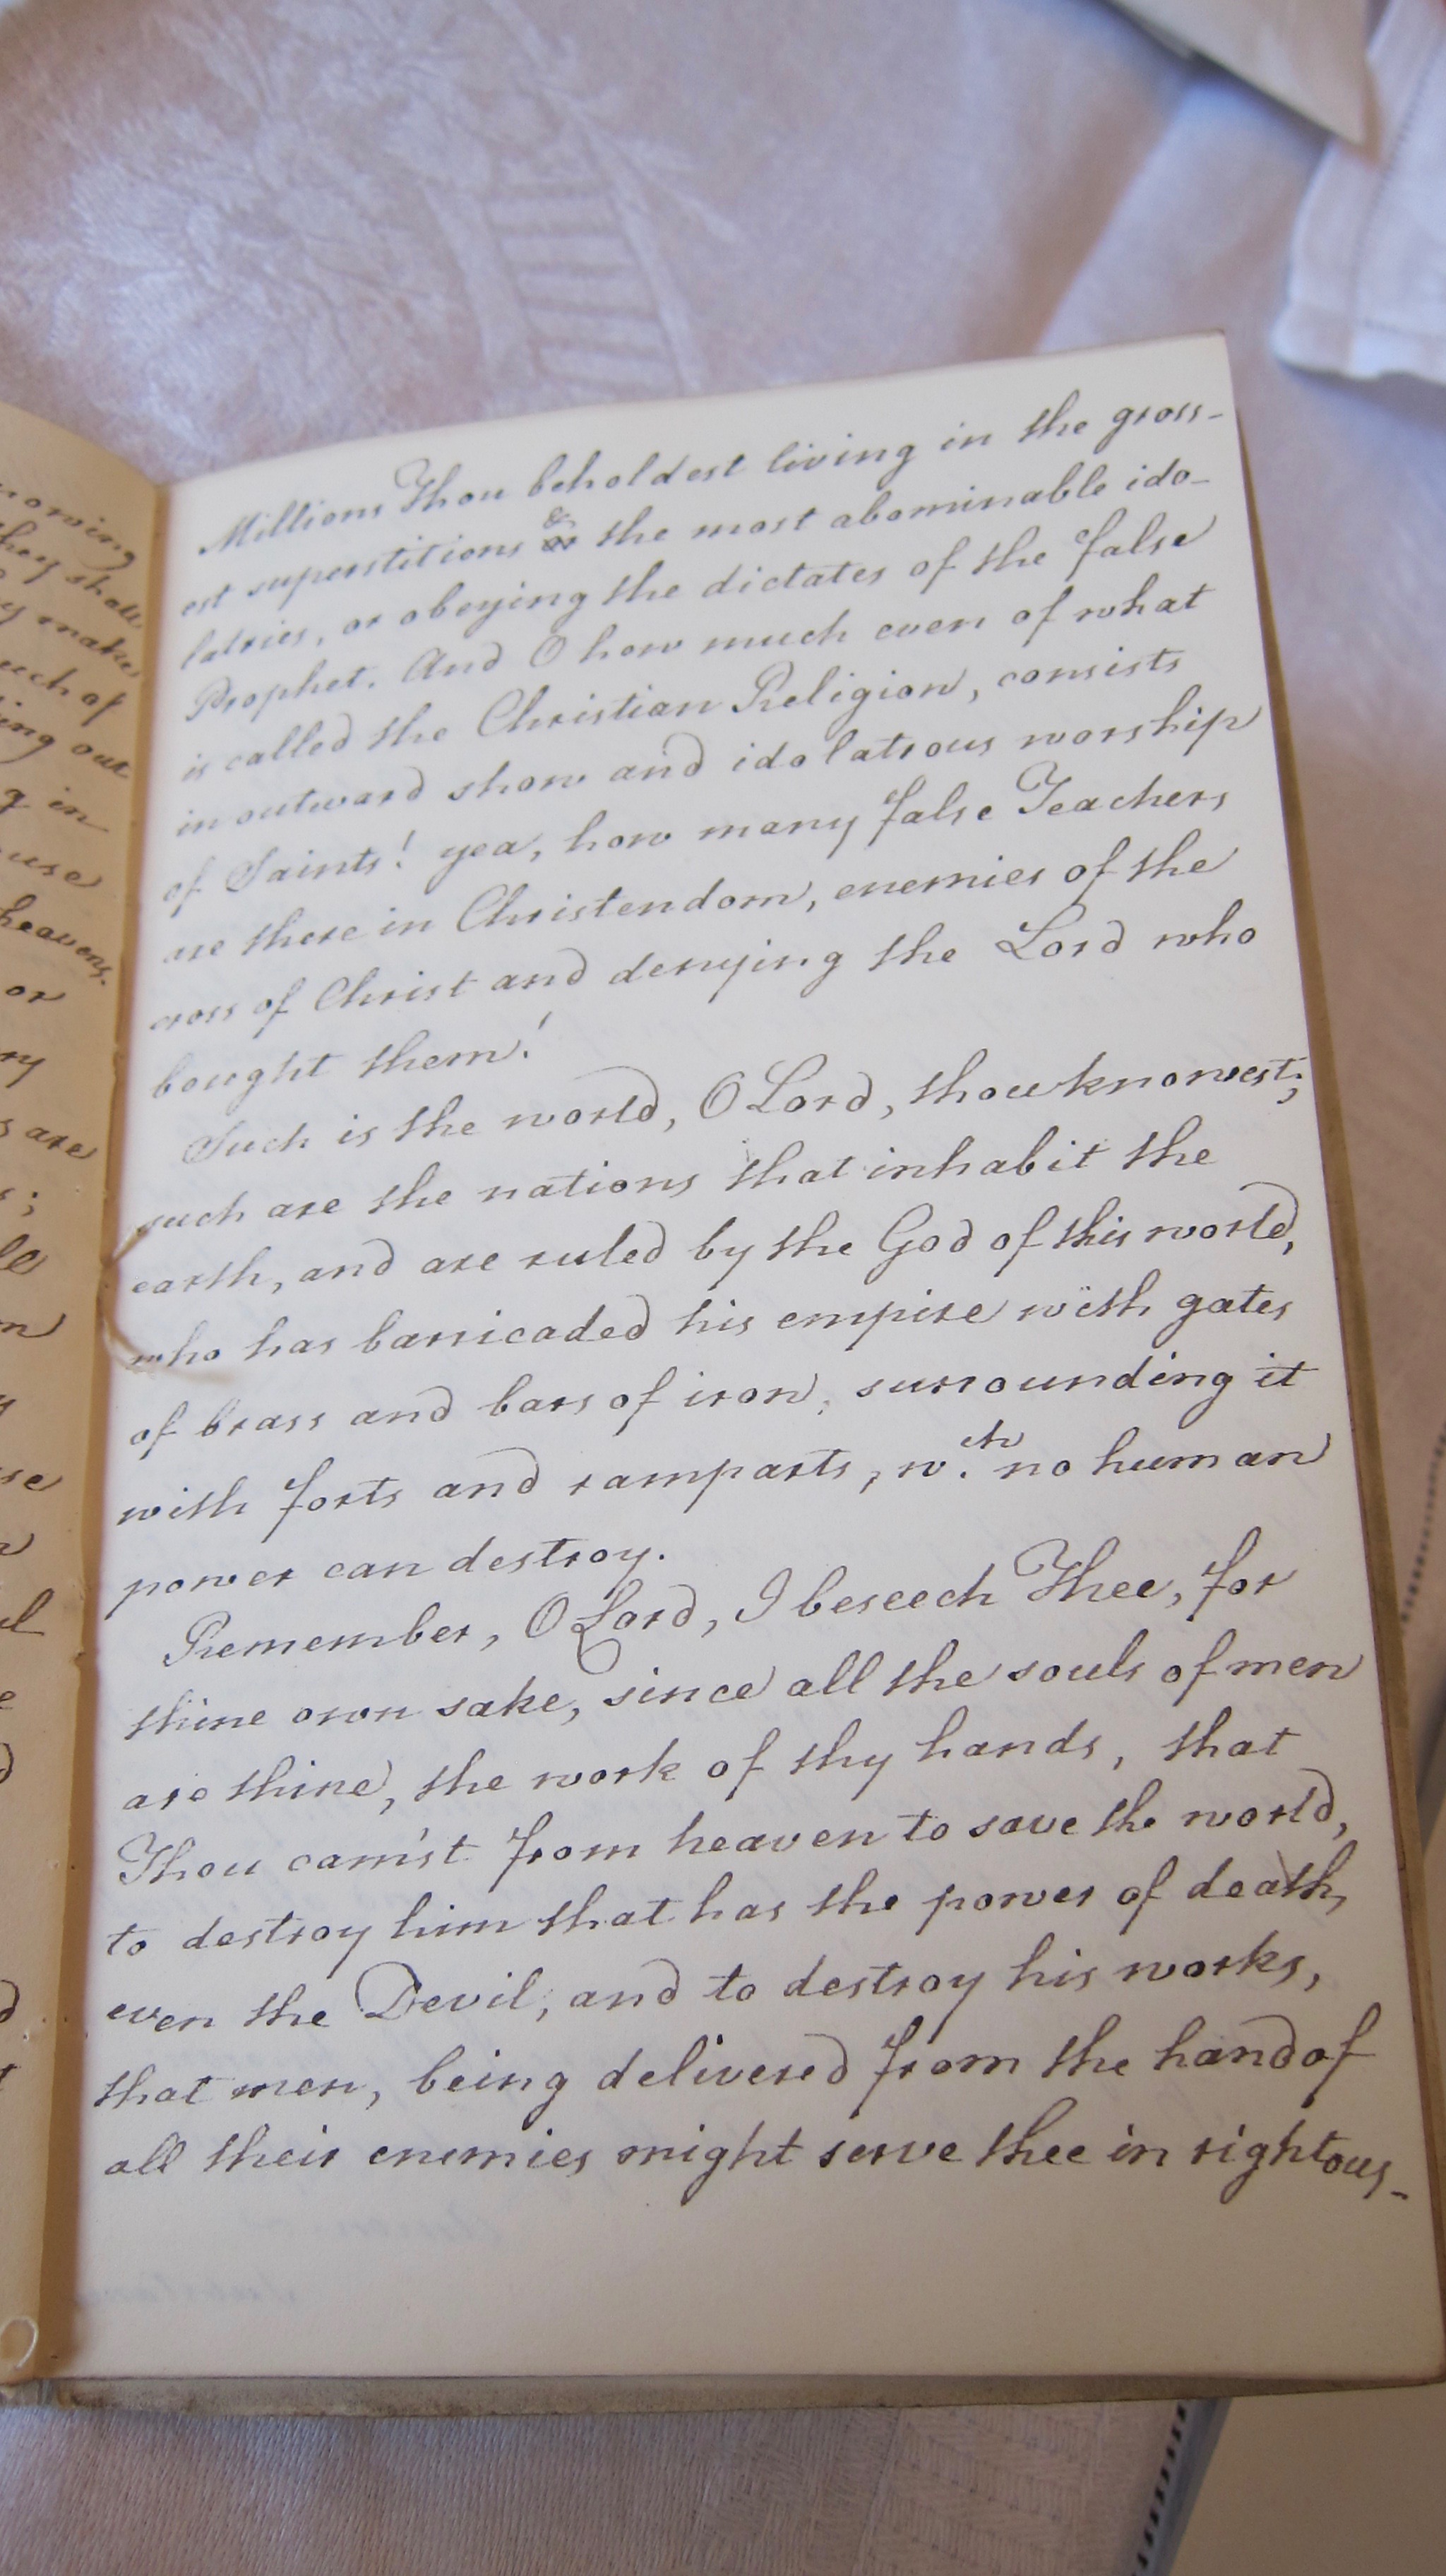 nowing
they shall
y make
uch of
ing out
g in
use
heavens.
or
ry
s are
Millions Thou beholdest living in the gross-
est superstitions or & the most abominable ido-
latries, or obeying the dictates of the false
Prophet. And O how much even of what
is called the Christian Religion, consists
in outward show and idolatrous worship
of Saints! yea, how many false Teachers
are there in Christendom, enemies of the
cross of Christ and denying the Lord who
bought them!
Such is the world, O Lord, thou knowest;
such are the nations that inhabit the
earth, and are ruled by the God of this world,
who has barricaded his empire with gates
of brass and bars of iron, surrounding it
with forts and ramparts, w.ch no human
power can destroy.
Remember, O Lord, I beseech Thee, for
thine own sake, since all the souls of men
are thine, the work of thy hands, that
Thou cam'st from heaven to save the world,
to destroy him that has the power of death,
even the Devil, and to destroy his works,
that men, being delivered from the hand of
all their enemies might serve thee in rightous-